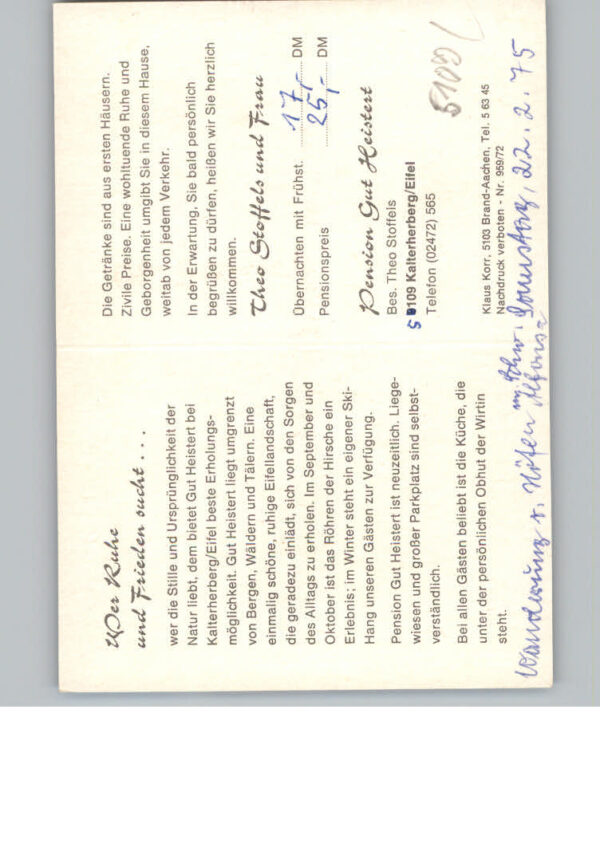 Wer Ruhe
und Frieden sucht . . .
wer die Stille und Ursprünglichkeit der
Natur liebt, dem bietet Gut Heistert bei
Kalterherberg/Eifel beste Erholungs-
möglichkeit. Gut Heistert liegt umgrenzt
von Bergen, Wäldern und Tälern. Eine
einmalig schöne, ruhige Eifellandschaft,
die geradezu einlädt, sich von den Sorgen
des Alltags zu erholen. Im September und
Oktober ist das Röhren der Hirsche ein
Erlebnis; im Winter steht ein eigener Ski-
Hang unseren Gästen zur Verfügung.
Pension Gut Heistert ist neuzeitlich. Liege-
wiesen und großer Parkplatz sind selbst-
verständlich.
Bei allen Gästen beliebt ist die Küche, die
unter der persönlichen Obhut der Wirtin
steht.
Die Getränke sind aus ersten Häusern.
Zivile Preise. Eine wohltuende Ruhe und
Geborgenheit umgibt Sie in diesem Hause,
weitab von jedem Verkehr.
In der Erwartung, Sie bald persönlich
begrüßen zu dürfen, heißen wir Sie herzlich
willkommen.
Theo Stoffels und Frau
Übernachten mit Frühst. 17,- DM
Pensionspreis 25,- DM
Pension Gut Heistert
Bes. Theo Stoffels
5109 Kalterherberg/Eifel
Telefon (02472) 565
5109
Klaus Korr, 5103 Brand-Aachen, Tel. 5 63 45
Nachdruck verboten - Nr. 959/72
Wanderung v. Höfen 22.2.75